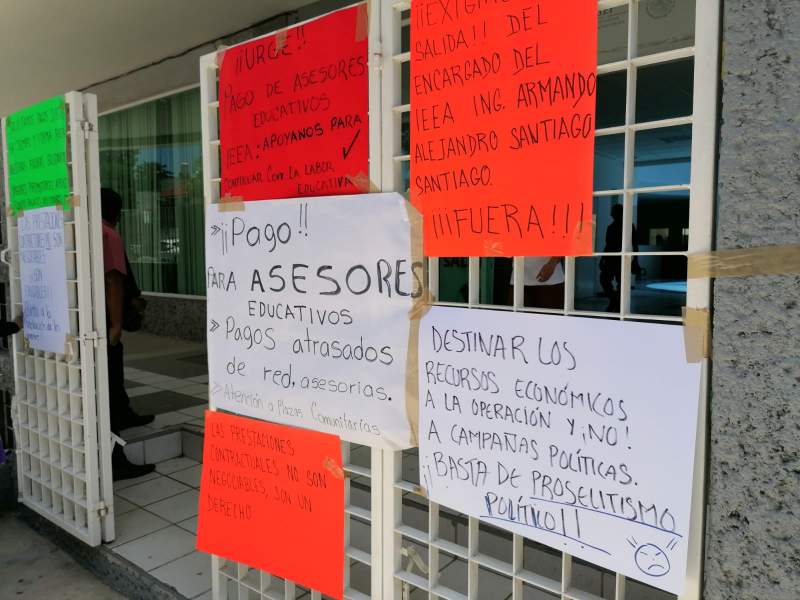 ¡¡URGE!!
PAGO DE ASESORES
EDUCATIVOS
IEEA: APOYANOS PARA
CONTINUAR CON LA LABOR
EDUCATIVA
¡¡EXIGIMOS
SALIDA!! DEL
ENCARGADO DEL
IEEA ING. ARMANDO
ALEJANDRO SANTIAGO
SANTIAGO.
¡¡¡FUERA!!!
» ¡¡Pago!!
PARA ASESORES
EDUCATIVOS
» Pagos atrasados
de red, asesorias.
» Atención a Plazas Comunitarias
DESTINAR LOS
RECURSOS ECONÓMICOS
A LA OPERACIÓN Y ¡NO!
A CAMPAÑAS POLÍTICAS.
¡¡BASTA DE PROSELITISMO
POLÍTICO!!
LAS PRESTACIONES
CONTRACTUALES NO SON
NEGOCIABLES, SON UN
DERECHO
LAS PRESTACIONES
SON